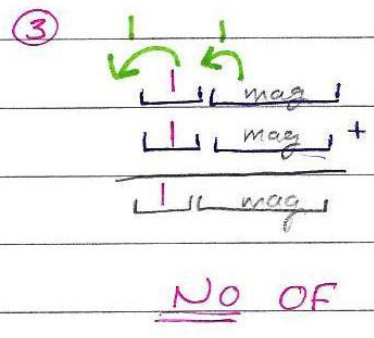 3
1 1
1 mag
1 mag +
1 mag
NO OF